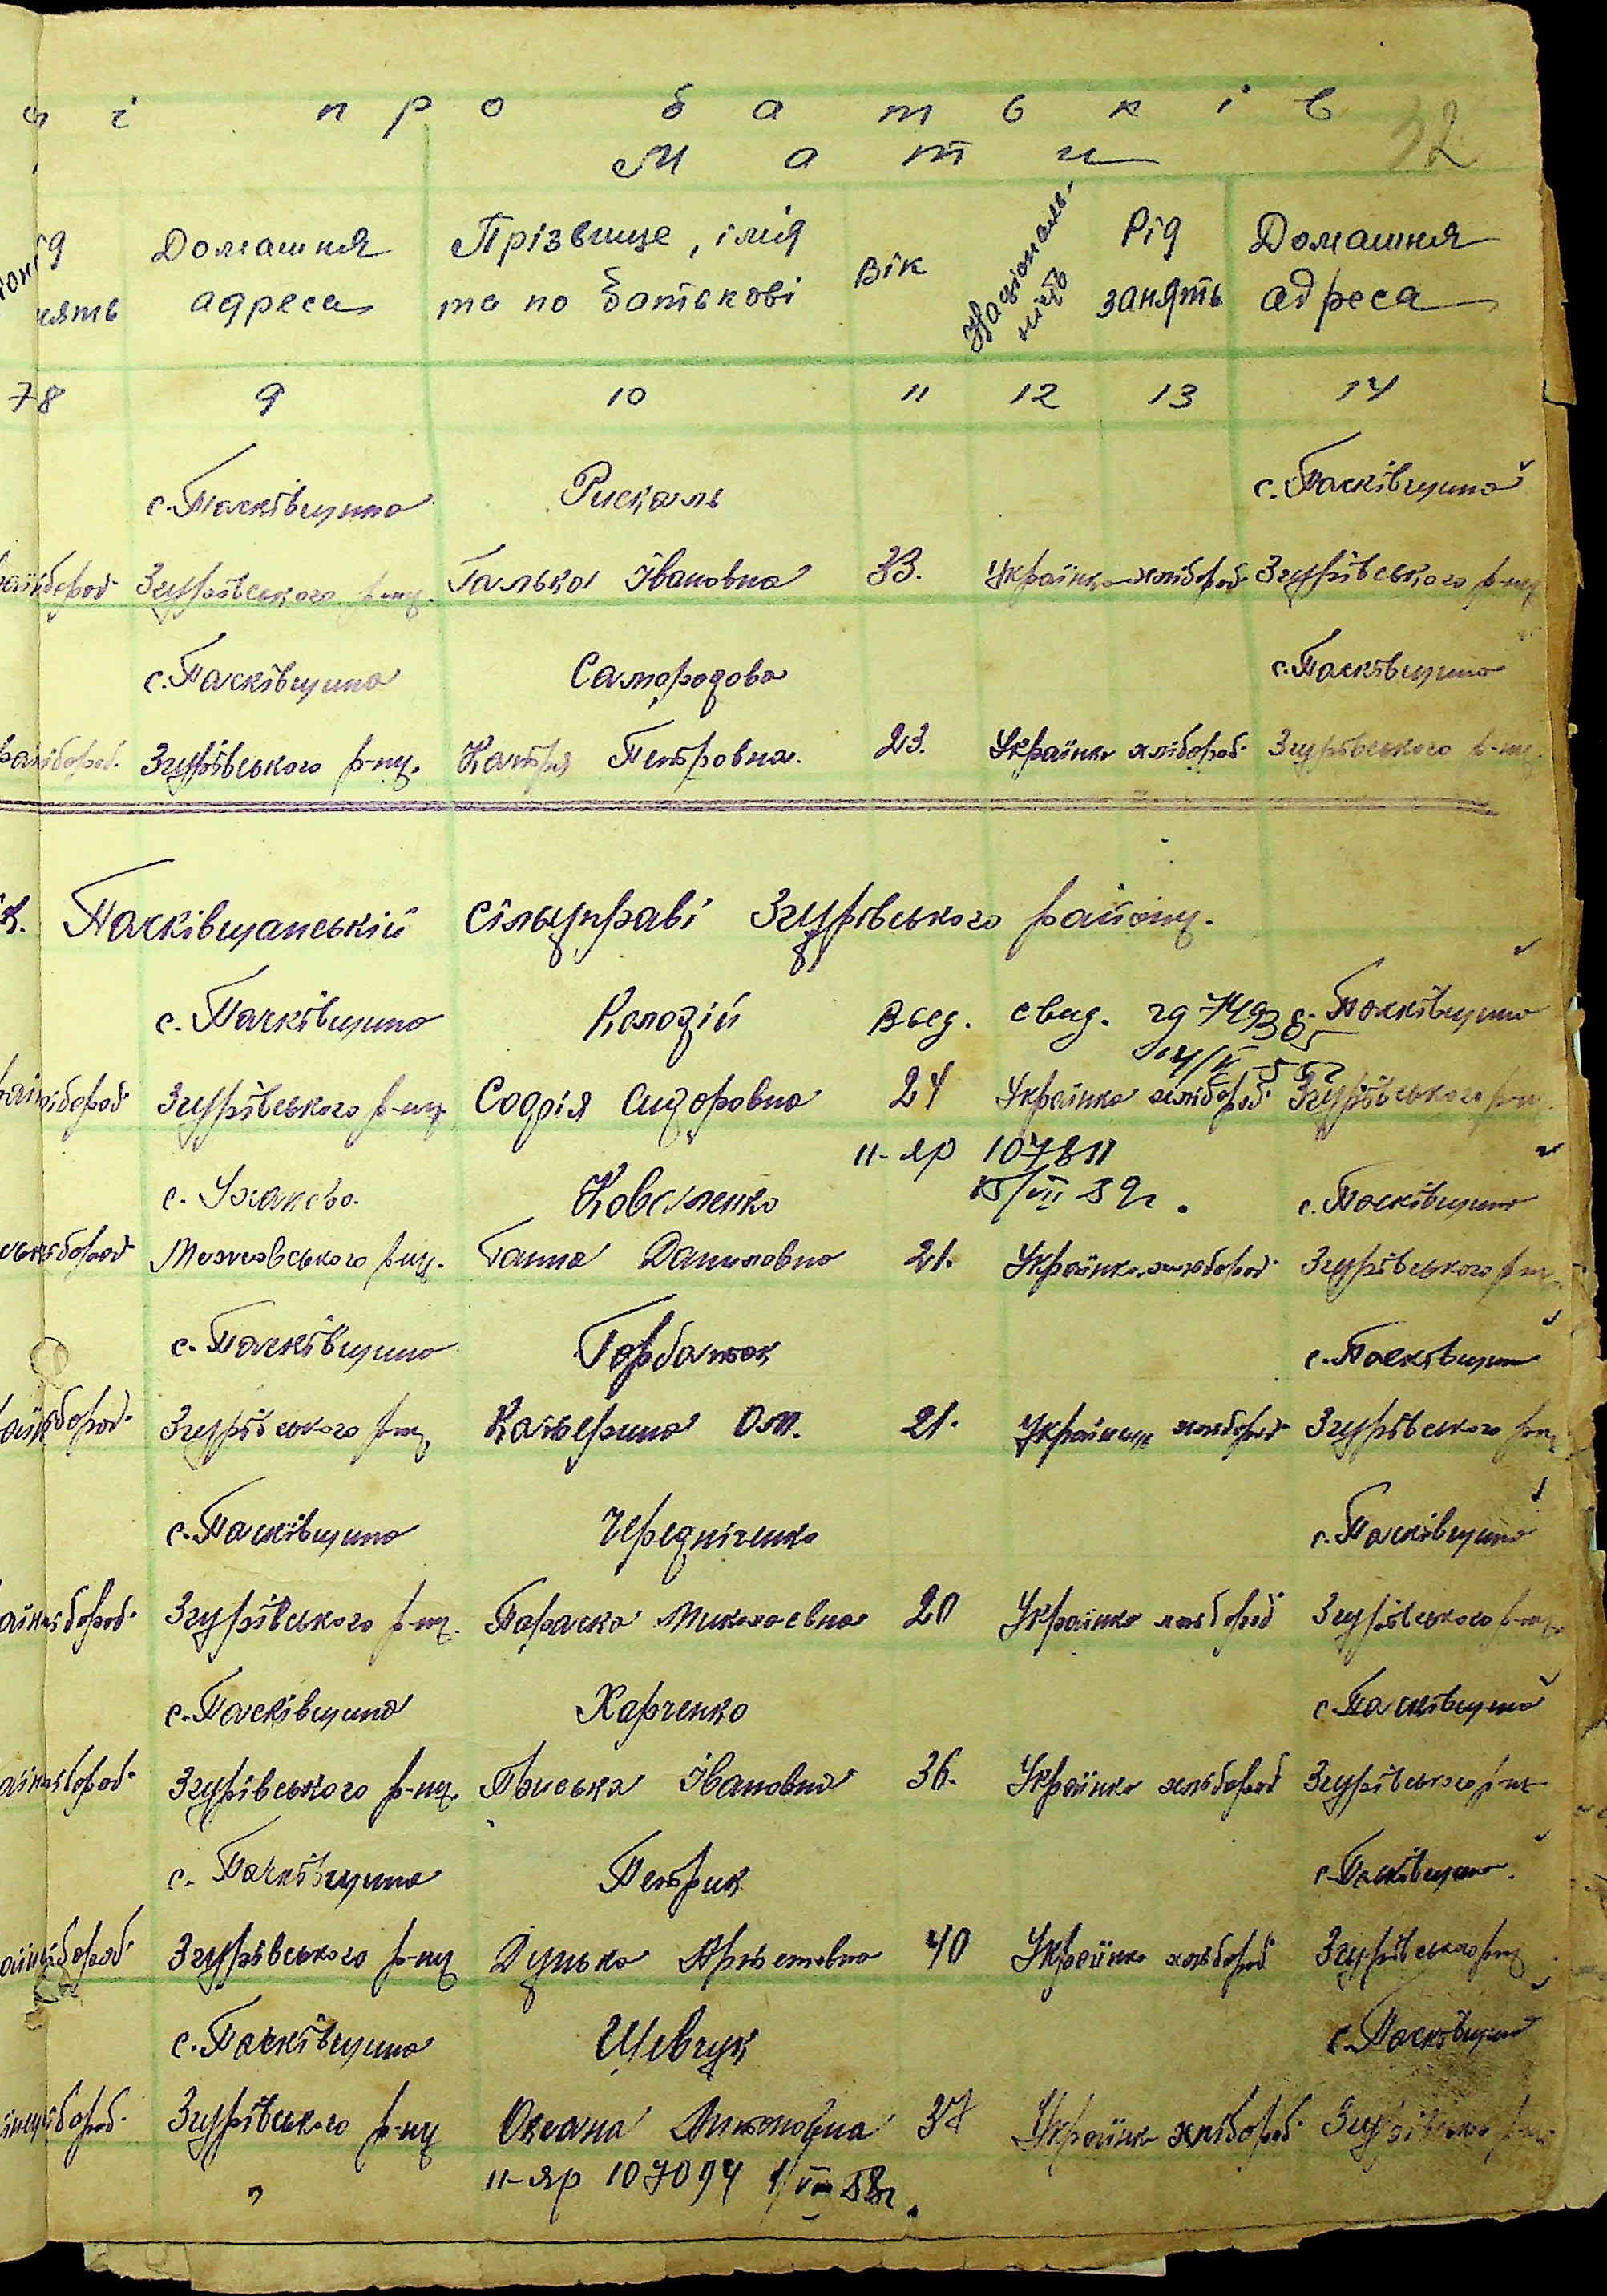 і про батьків
32
Мати
Домашня Прізвище, імя Вік Національ- Рід Домашня
нять адреса та по батькові ність занять адреса
78 9 10 11 12 13 14
с. Пасківщина Рискаль с. Пасківщина
хлібороб. Згурівського р-ну. Галька Івановна 33. Українка хлібороб. Згурівського р-ну
с. Пасківщина Самородова с. Пасківщина
хлібороб. Згурівського р-ну. Катря Петровна. 23. Українка хлібороб. Згурівського р-ну
Пасківщанській сільуправі Згурівського району.
с. Пасківщина Колодій Выд. свид. с. Пасківщина
хлібороб Згурівського р-ну Софія Сидоровна 24 Українка хлібороб. Згурівського р-н
11-яр 107811
с. Коваленко 15/VII 59г. с. Пасківщина
хлібороб р-ну. Ганна Даниловна 21. Українка хлібороб. Згурівського р-ну
с. Пасківщина Горбаток с. Пасківщина
хлібороб. Згурівського р-ну Катерина Ом. 21. хлібороб Згурівського р-ну
с. Пасківщина Чередніченко с. Пасківщина
хлібороб. Згурівського р-ну. Параска Миколаевна 20 Українка хлібороб Згурівського р-ну
с. Пасківщина Харченко с. Пасківщина
хлібороб. Згурівського р-ну. Пріська Івановна 36. Українка хлібороб Згурівського р-ну
с. Пасківщина Петрик с. Пасківщина.
хлібороб Згурівського р-ну Дунька 40 Українка хлібороб Згурівського р-ну
с. Пасківщина Шевчук с. Пасківщина
хлібороб. Згурівського р-ну Оксана 37 Українка хлібороб. Згурівського р-ну
" 11-яр 107094 58г.